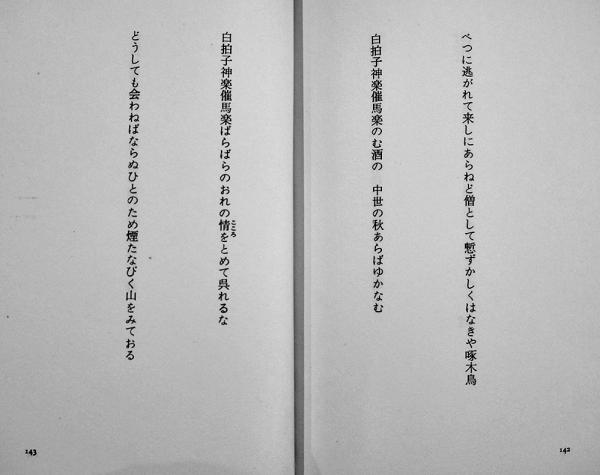 べつに逃がれて来しにあらねど僧として慙ずかしくはなきや啄木鳥
白拍子神楽催馬楽のむ酒の　中世の秋あらばゆかなむ
142
白拍子神楽催馬楽ばらばらのおれの情をとめて呉れるな
こころ
どうしても会わねばならぬひとのため煙たなびく山をみておる
143